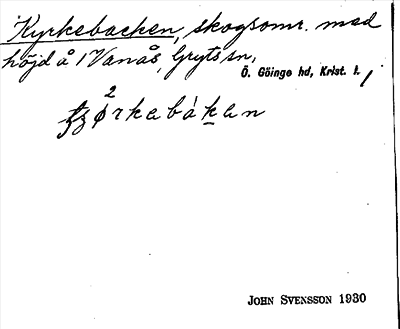 Kyrkebacken, skogsomr. med
höjd å 1 Vanås, Gryts sn,
Ö. Göinge hd, Krist. l.
2
ørkabàkan
JOHN SVENSSON 1930